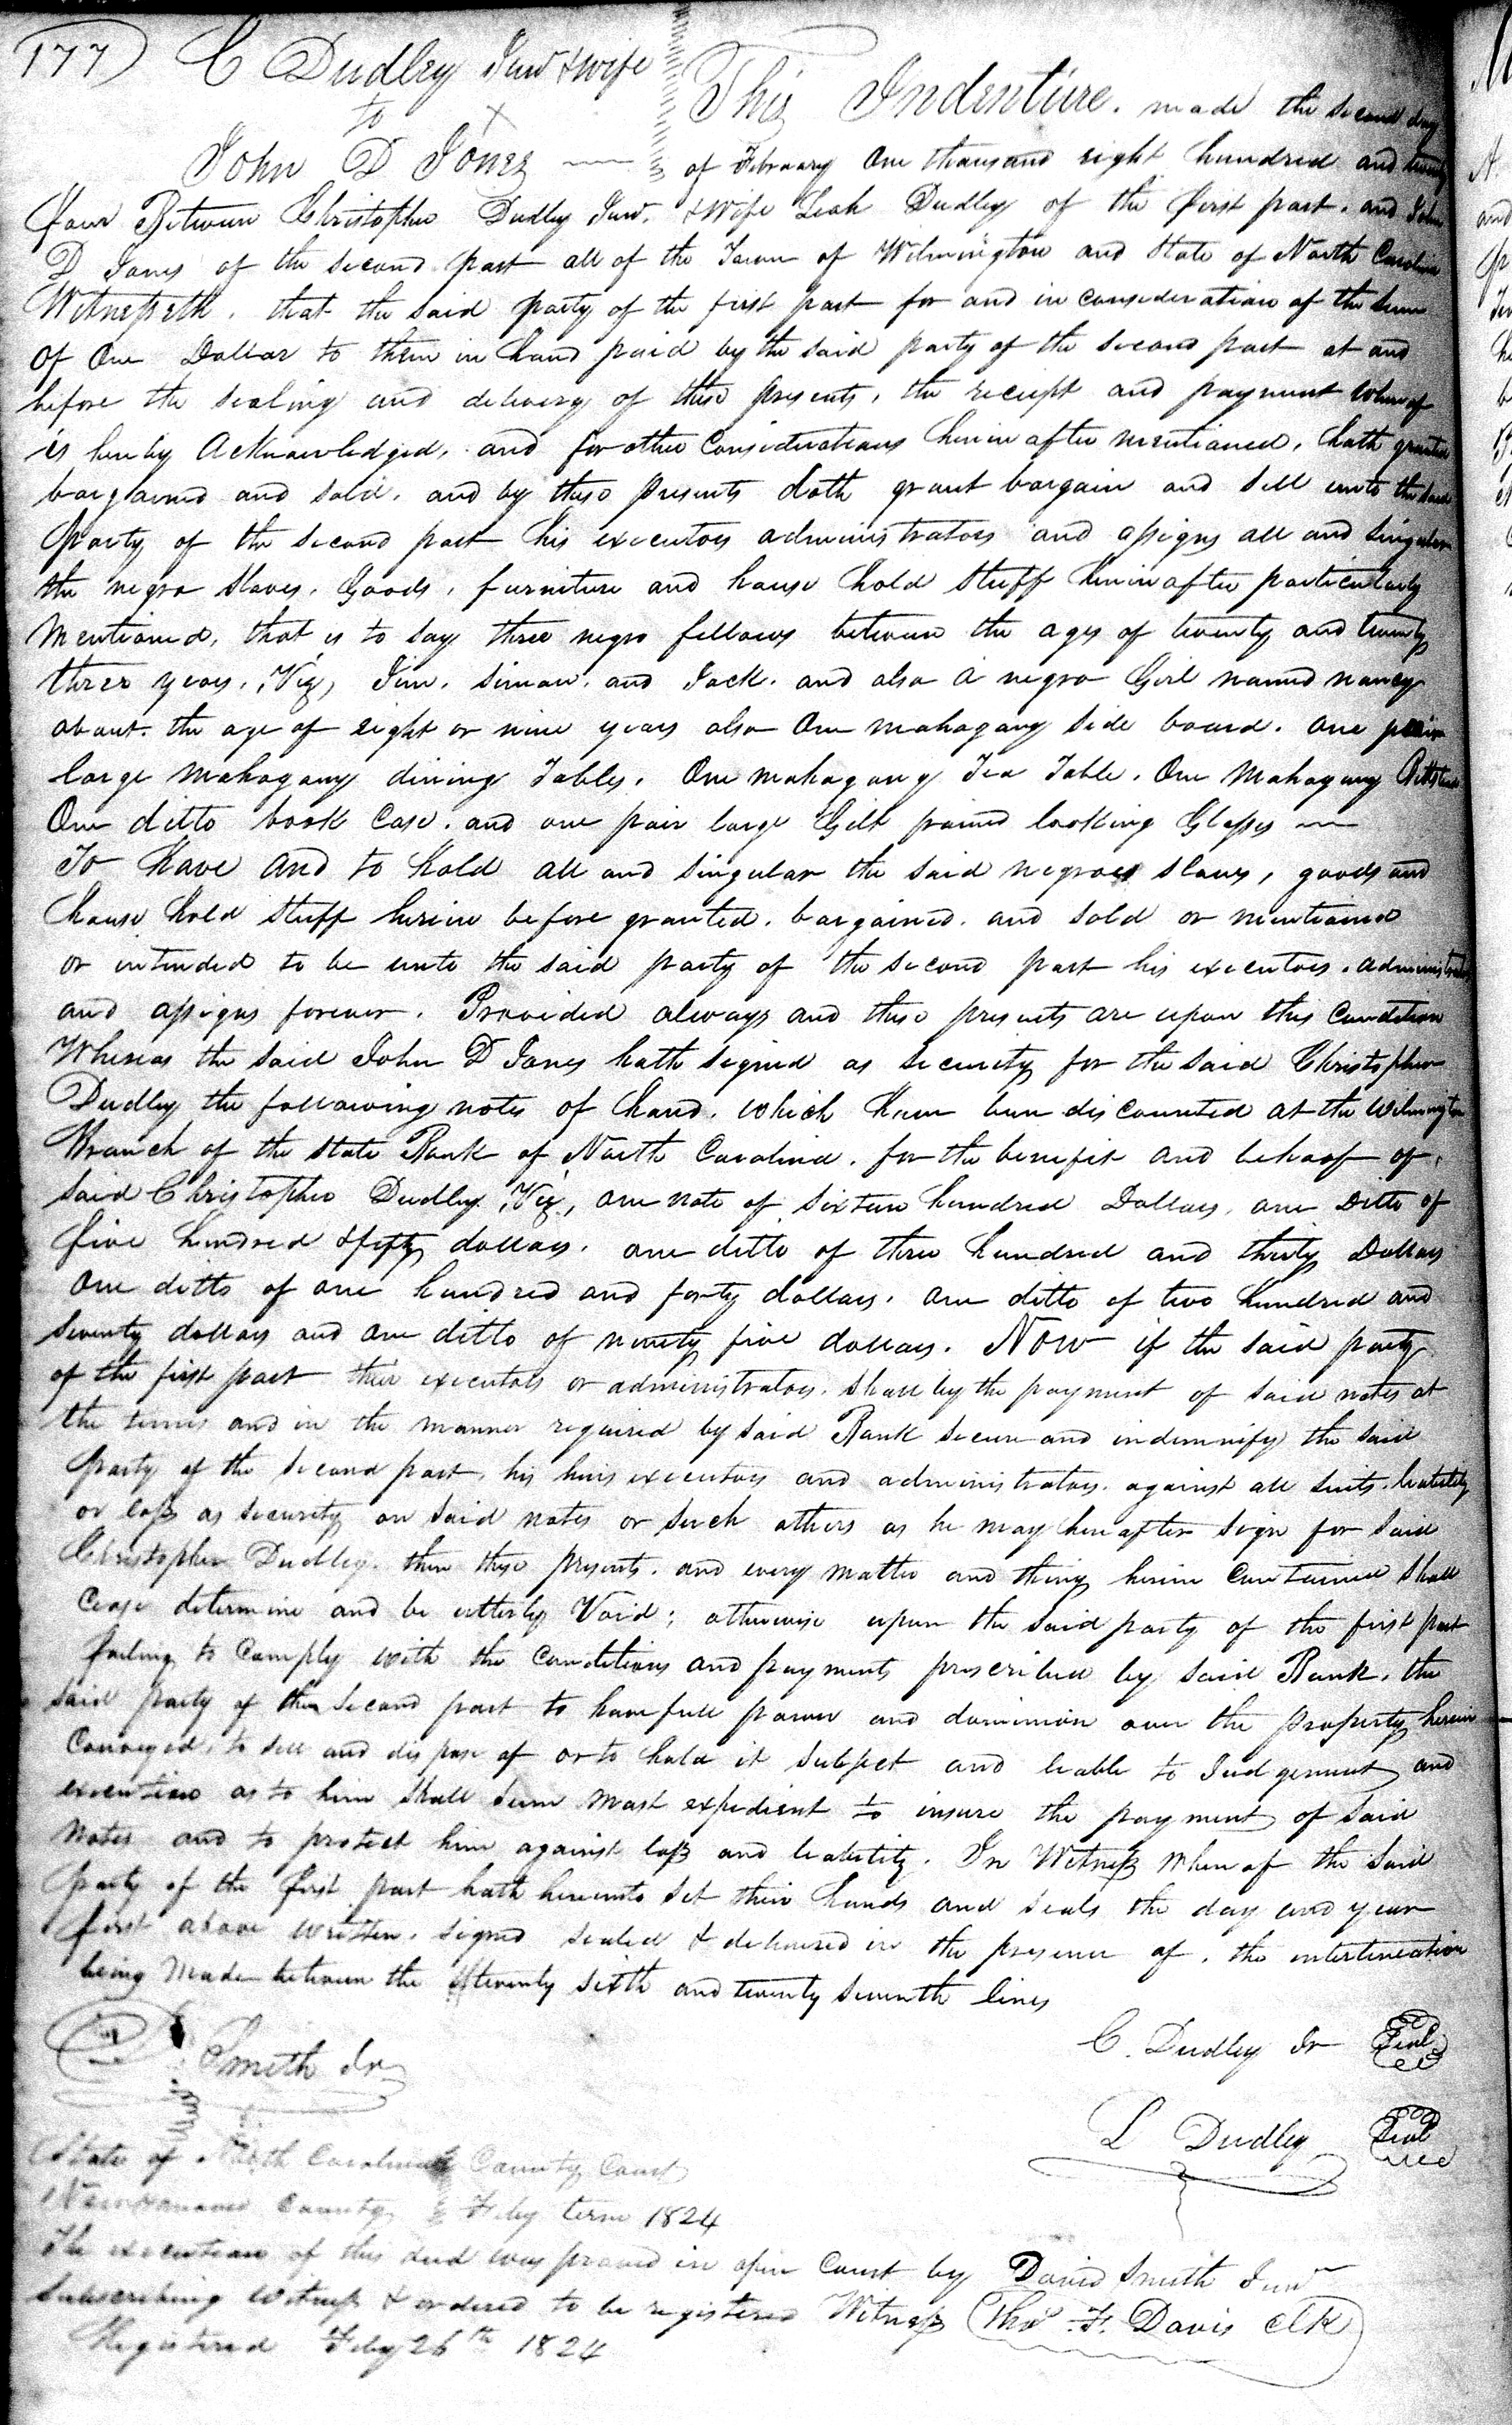 177) C Dudley Junr & wife
to
John D Jones
This Indenture. made the second day
of February One thousand eight hundred and twenty
Four Between Christopher Dudley Junr. & Wife Leah Dudley of the first part. and John
D Jones of the second part all of the Town of Wilmington and State of North Carolina
Witnesseth. that the said party of the first part for and in consideration of the sum
of One Dollar to them in hand paid by the said party of the second part at and
before the sealing and delivery of these presents, the receipt and payment whereof
is hereby Acknowledged, and for other Considerations herein after mentioned, hath granted
bargained and sold. and by these presents doth grant bargain and sell unto the said
party of the second part his executors administrators and assigns all and singular
the negro slaves, Goods, furniture and house hold stuff herein after particularly
mentioned, that is to say three negro fellows between the ages of twenty and twenty
three years. Viz, Jim. Simon. and Jack. and also a negro Girl named nancy
about. the age of eight or nine years also One mahogany side board. one pair
large mahogany dining Tables. One mahogany Tea Table. One Mahogany Bedstead
One ditto book Case. and one pair large Gilt framed looking Glasses
To Have and to Hold all and singular the said negroes slaves, goods and
house hold stuff herein before granted. bargained. and sold or mentioned
or intended to be unto the said party of the second part his executors. administrators
and assigns forever. Provided always and these presents are upon this Condition
Whereas the said John D Jones hath signed as security for the said Christopher
Dudley the following notes of hand. which have been discounted at the Wilmington
Branch of the State Bank of North Carolina. for the benefit and behoof of
said Christopher Dudley Viz, one note of sixteen hundred Dollars, one Ditto of
five hundred & fifty dollars. one ditto of three hundred and thirty Dollars
One ditto of one hundred and forty dollars. one ditto of two hundred and
seventy dollars and one ditto of ninety five dollars. Now if the said party
of the first part their executors or administrators. shall by the payment of said notes at
the times and in the manner required by said Bank secure and indemnify the said
party of the second part, his heirs executors and administrators. against all suits. liability
or loss as security on said notes or such others as he may hereafter sign for said
Christopher Dudley. then these presents. and every matter and thing herein Contained shall
cease determine and be utterly Void; otherwise upon the said party of the first part
failing to Comply with the Conditions and payments prescribed by said Bank, the
said party of the second part to have full power and dominion over the property herein
Conveyed, to sell and dispose of or to hold it subject and leable to Judgement and
execution as to him shall seem most expedient to insure the payment of said
notes and to protect him against loss and leability. In Witness whereof the said
party of the first part hath hereunto set their hands and seals the day and year
first above written. signed sealed & delivered in the presence of. the interlineation
being made between the twenty sixth and twenty seventh lines
C. Dudley Jr Seal
Smith Jr
L Dudley Seal
State of North Carolina County Court
New Hanover County Feby term 1824
The execution of this deed was proved in open Court by David Smith Junr
subscribing witness & ordered to be registered Witness Thos. F. Davis Clk
Registered Feby 26th 1824